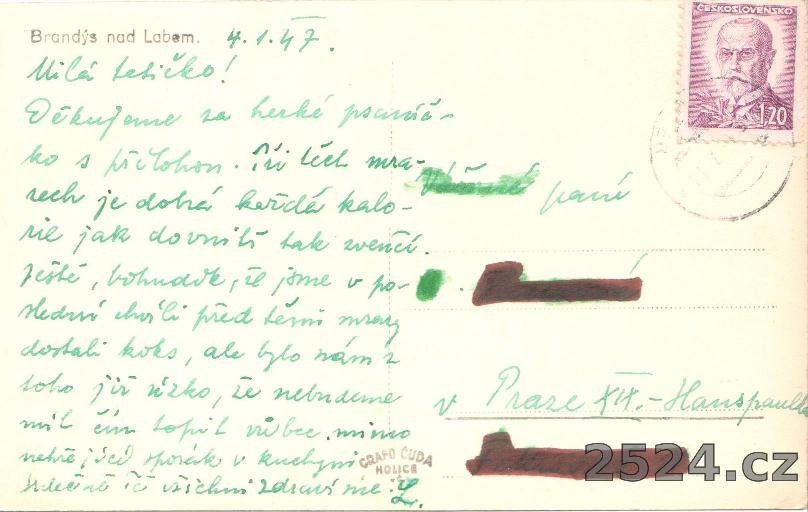 Brandýs nad Labem. 4.1.47.
Milá tetičko!
Děkujeme za hezké psaníč-
ko s přílohou. Při těch mra-
zech je dobrá každá kalo-
rie jak dovnitř tak zvenčí.
Ještě, bohudík, že jsme v po-
slední chvíli před těmi mrazy
dostali koks, ale bylo nám z
toho již úzko, že nebudeme
mít čím topit vůbec mimo
nehřející sporák v kuchyni
Srdečně Tě všichni zdraví me
ČESKOSLOVENSKO
1,20
Vážená paní
v Praze XIX.-Hanspaulka
GRAFO ČUDA
HOLICE
2524.cz